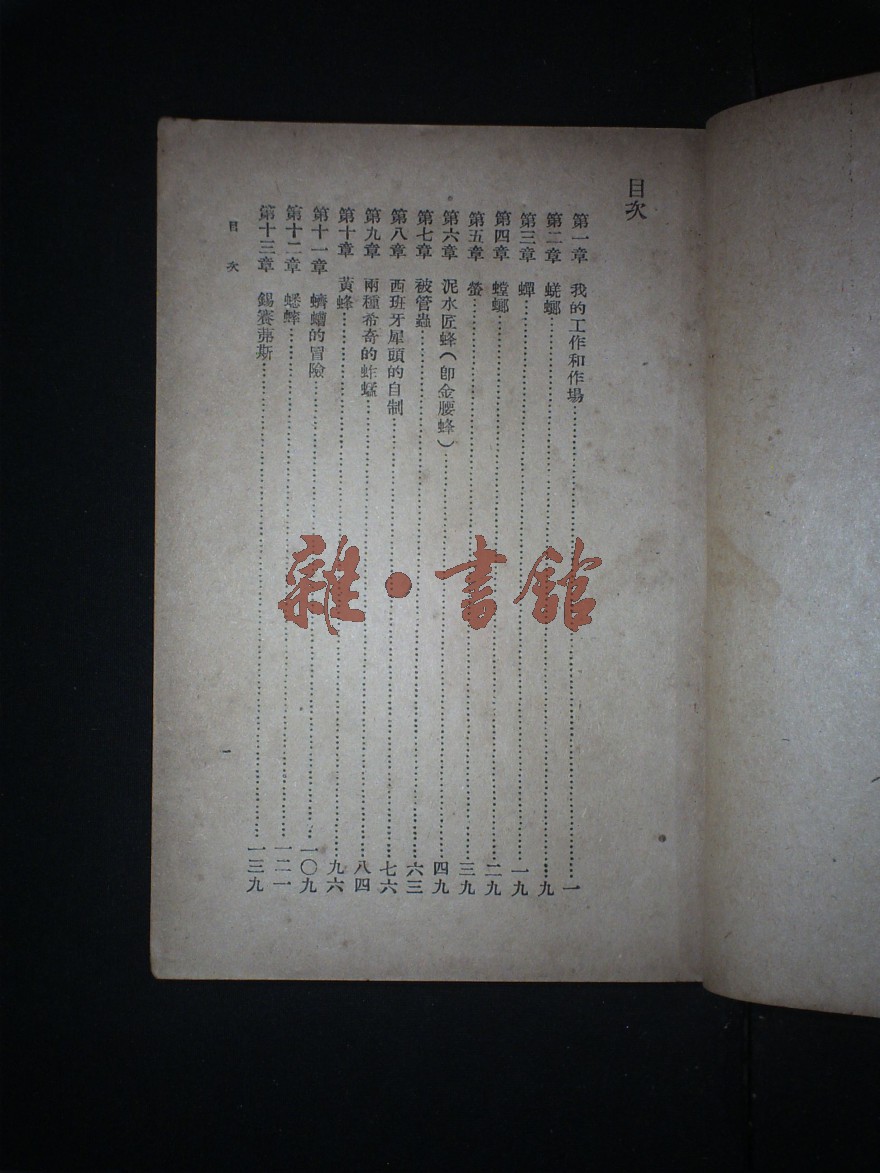 目次
第一章　我的工作和作場……一
第二章　蜣螂……九
第三章　蟬……一九
第四章　螳螂……二九
第五章　螢……三九
第六章　泥水匠蜂（卽金腰蜂）……四九
第七章　被管蟲……六三
第八章　西班牙犀頭的自制……七六
第九章　兩種希奇的蚱蜢……八四
第十章　黃蜂……九六
第十一章　蠐螬的冒險……一〇九
第十二章　蟋蟀……一二一
第十三章　錫賽弗斯……一三九
目次
一
雜·書館